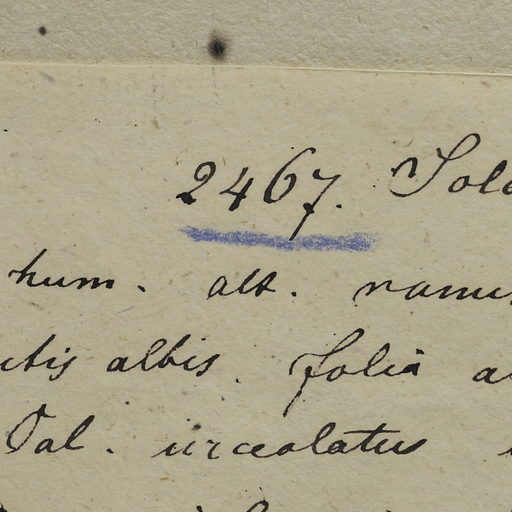 2467. Sola
hum. alt. ramis
utis albis. folia a
Cal. urceolatus